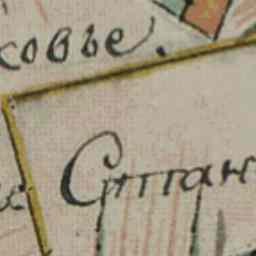 ковье.
Стан